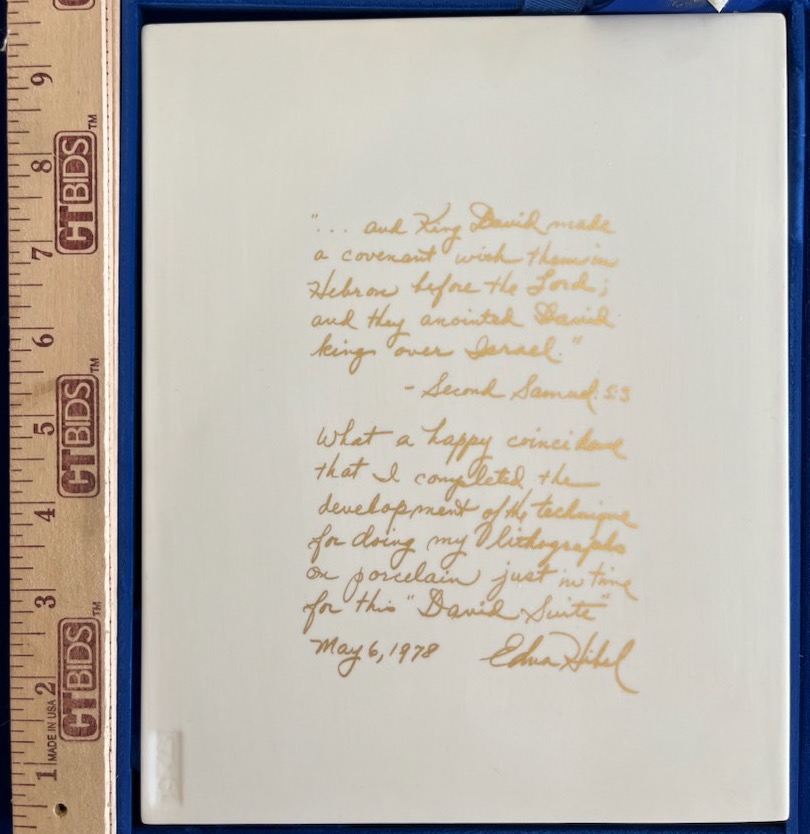 9
8
CTBIDS™
7
6
5
CTBIDS™
4
3
2
CTBIDS™
MADE IN USA
1
"... and King David made
a covenant with them in
Hebron before the Lord;
and they anointed David
king over Israel."
- Second Samuel 5:3
What a happy coincidence
that I completed the
development of the technique
for doing my lithographs
on porcelain just in time
for this "David Suite"
May 6, 1978 Edna Hibel